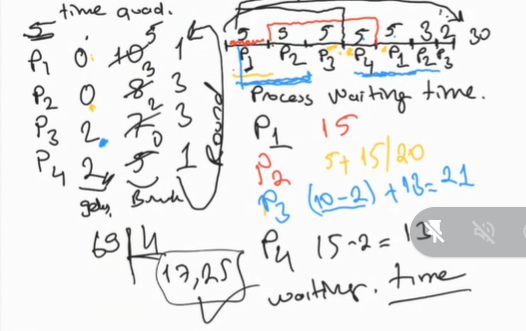 time quad.
5
P1 0 10 5 1
P2 0 8 3 3
P3 2 7 2 3
P4 2 5 0 1
Round
69 | 4
17,25
5 5 5 5 5 3 2 30
P1 P2 P3 P4 P1 P2 P3
Process waiting time.
P1 15
P2 5+15/20
P3 (10-2)+13=21
P4 15-2=13
waiting. time